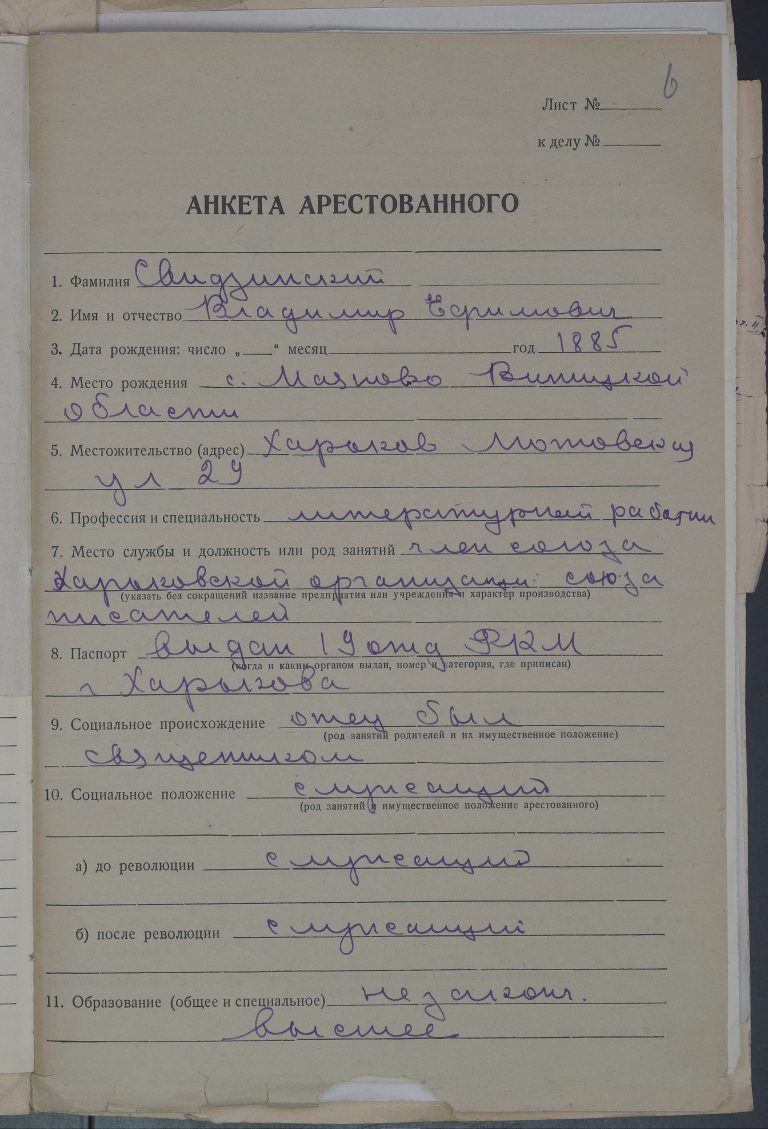 6
Лист №
к делу №
АНКЕТА АРЕСТОВАННОГО
1. Фамилия Свидзинский
2. Имя и отчество Владимир Ефимович
3. Дата рождения: число „ “ месяц год 1885
4. Место рождения с. Маяново Виницкой
области
5. Местожительство (адрес) Харьков
ул 29
6. Профессия и специальность литературной работник
7. Место службы и должность или род занятий член союза
Харьковской организации союза
(указать без сокращений название предприятия или учреждения и характер производства)
писателей
8. Паспорт выдан 19 отд РКМ
(когда и каким органом выдан, номер и категория, где приписан)
г Харькова
9. Социальное происхождение отец был
(род занятий родителей и их имущественное положение)
священиком
10. Социальное положение служащий
(род занятий и имущественное положение арестованного)
а) до революции служащий
б) после революции служащий
11. Образование (общее и специальное) незаконч.
высшее